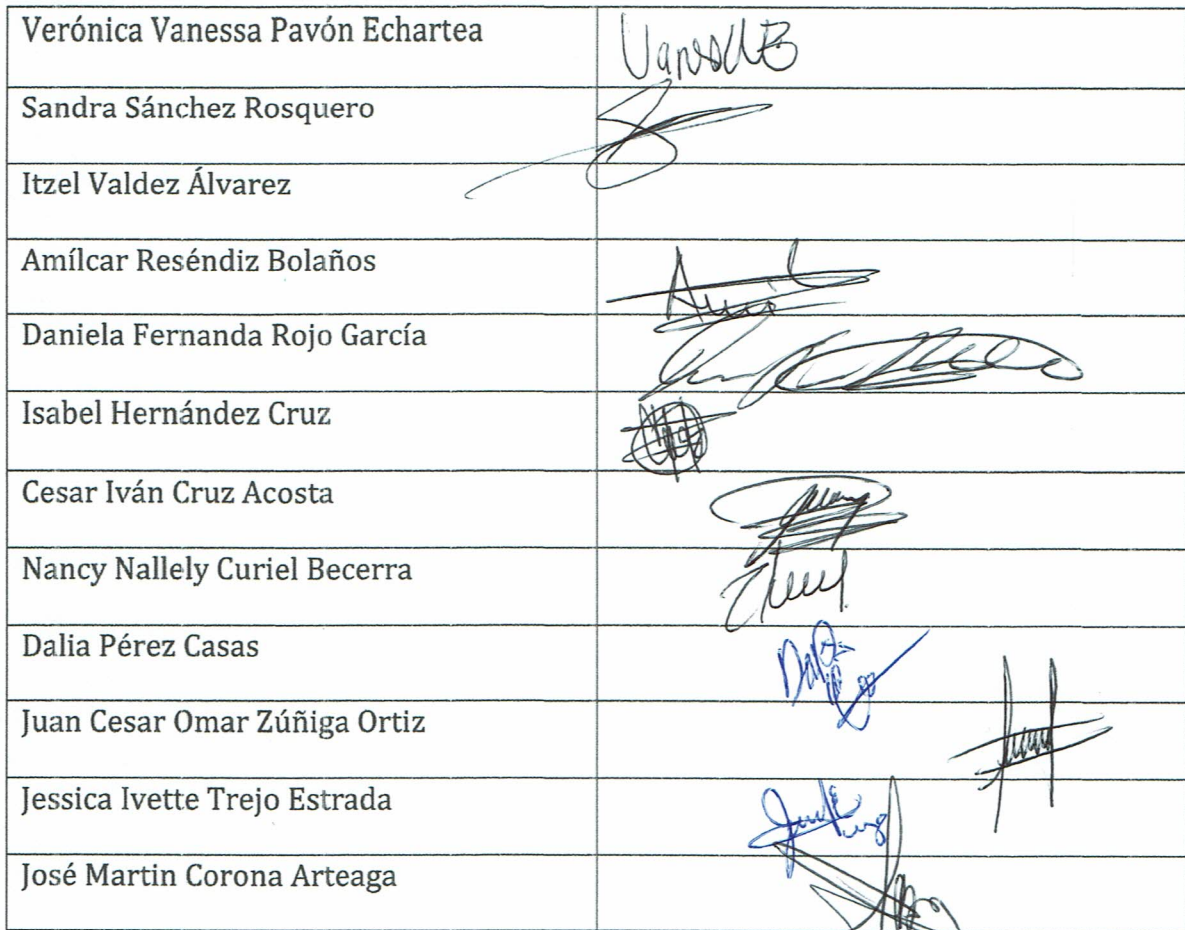 Verónica Vanessa Pavón Echartea
Sandra Sánchez Rosquero
Itzel Valdez Álvarez
Amílcar Reséndiz Bolaños
Daniela Fernanda Rojo García
Isabel Hernández Cruz
Cesar Iván Cruz Acosta
Nancy Nallely Curiel Becerra
Dalia Pérez Casas
Juan Cesar Omar Zúñiga Ortiz
Jessica Ivette Trejo Estrada
José Martin Corona Arteaga